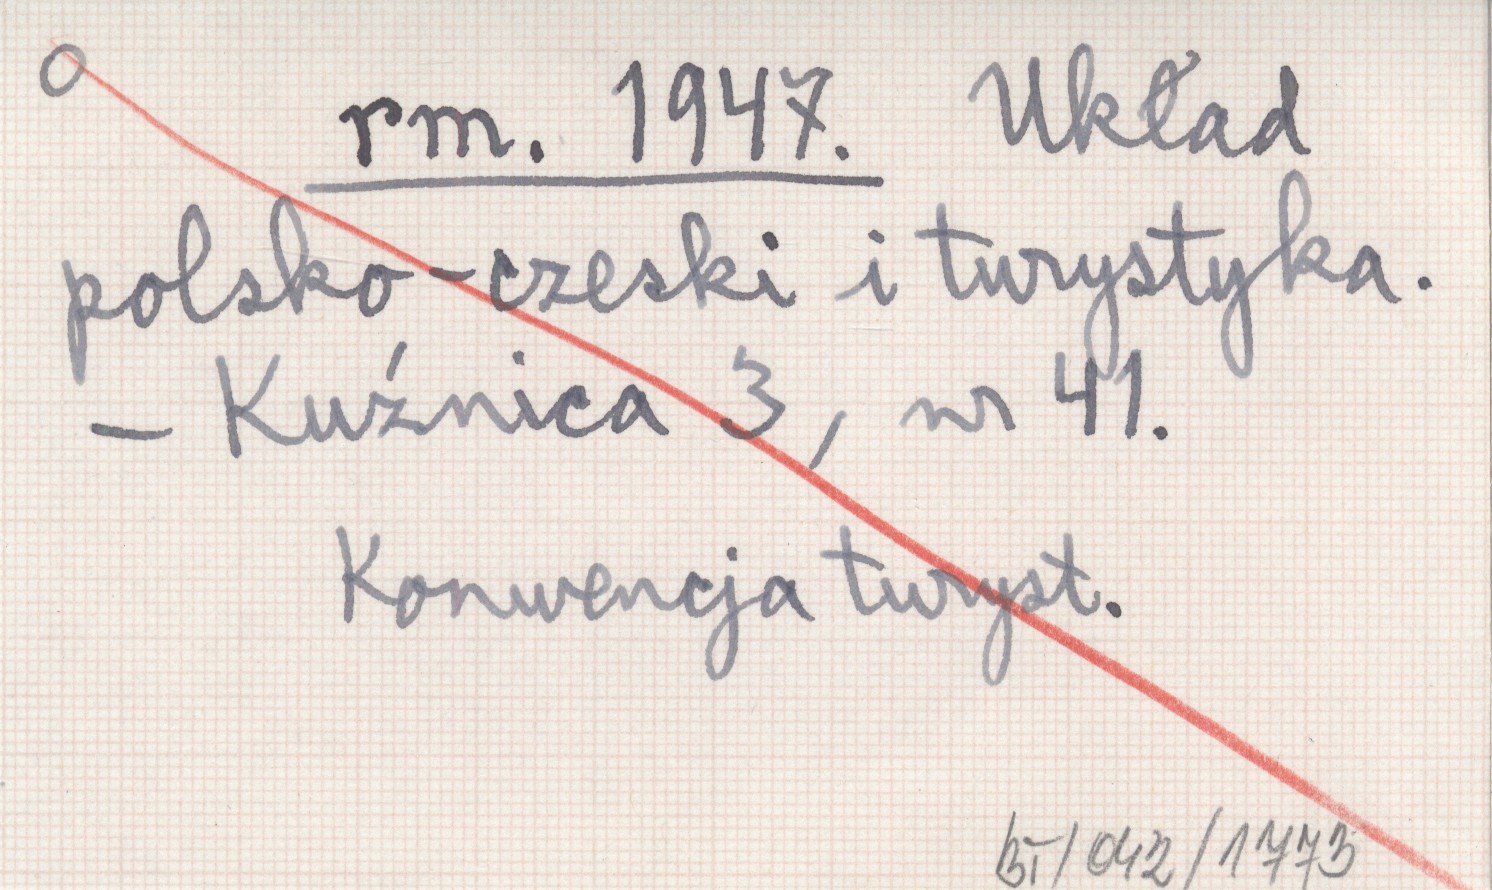 O
rm. 1947. Układ
polsko-czeski i turystyka.
– Kuźnica 3, nr 41.
Konwencja turyst.
/042/1773